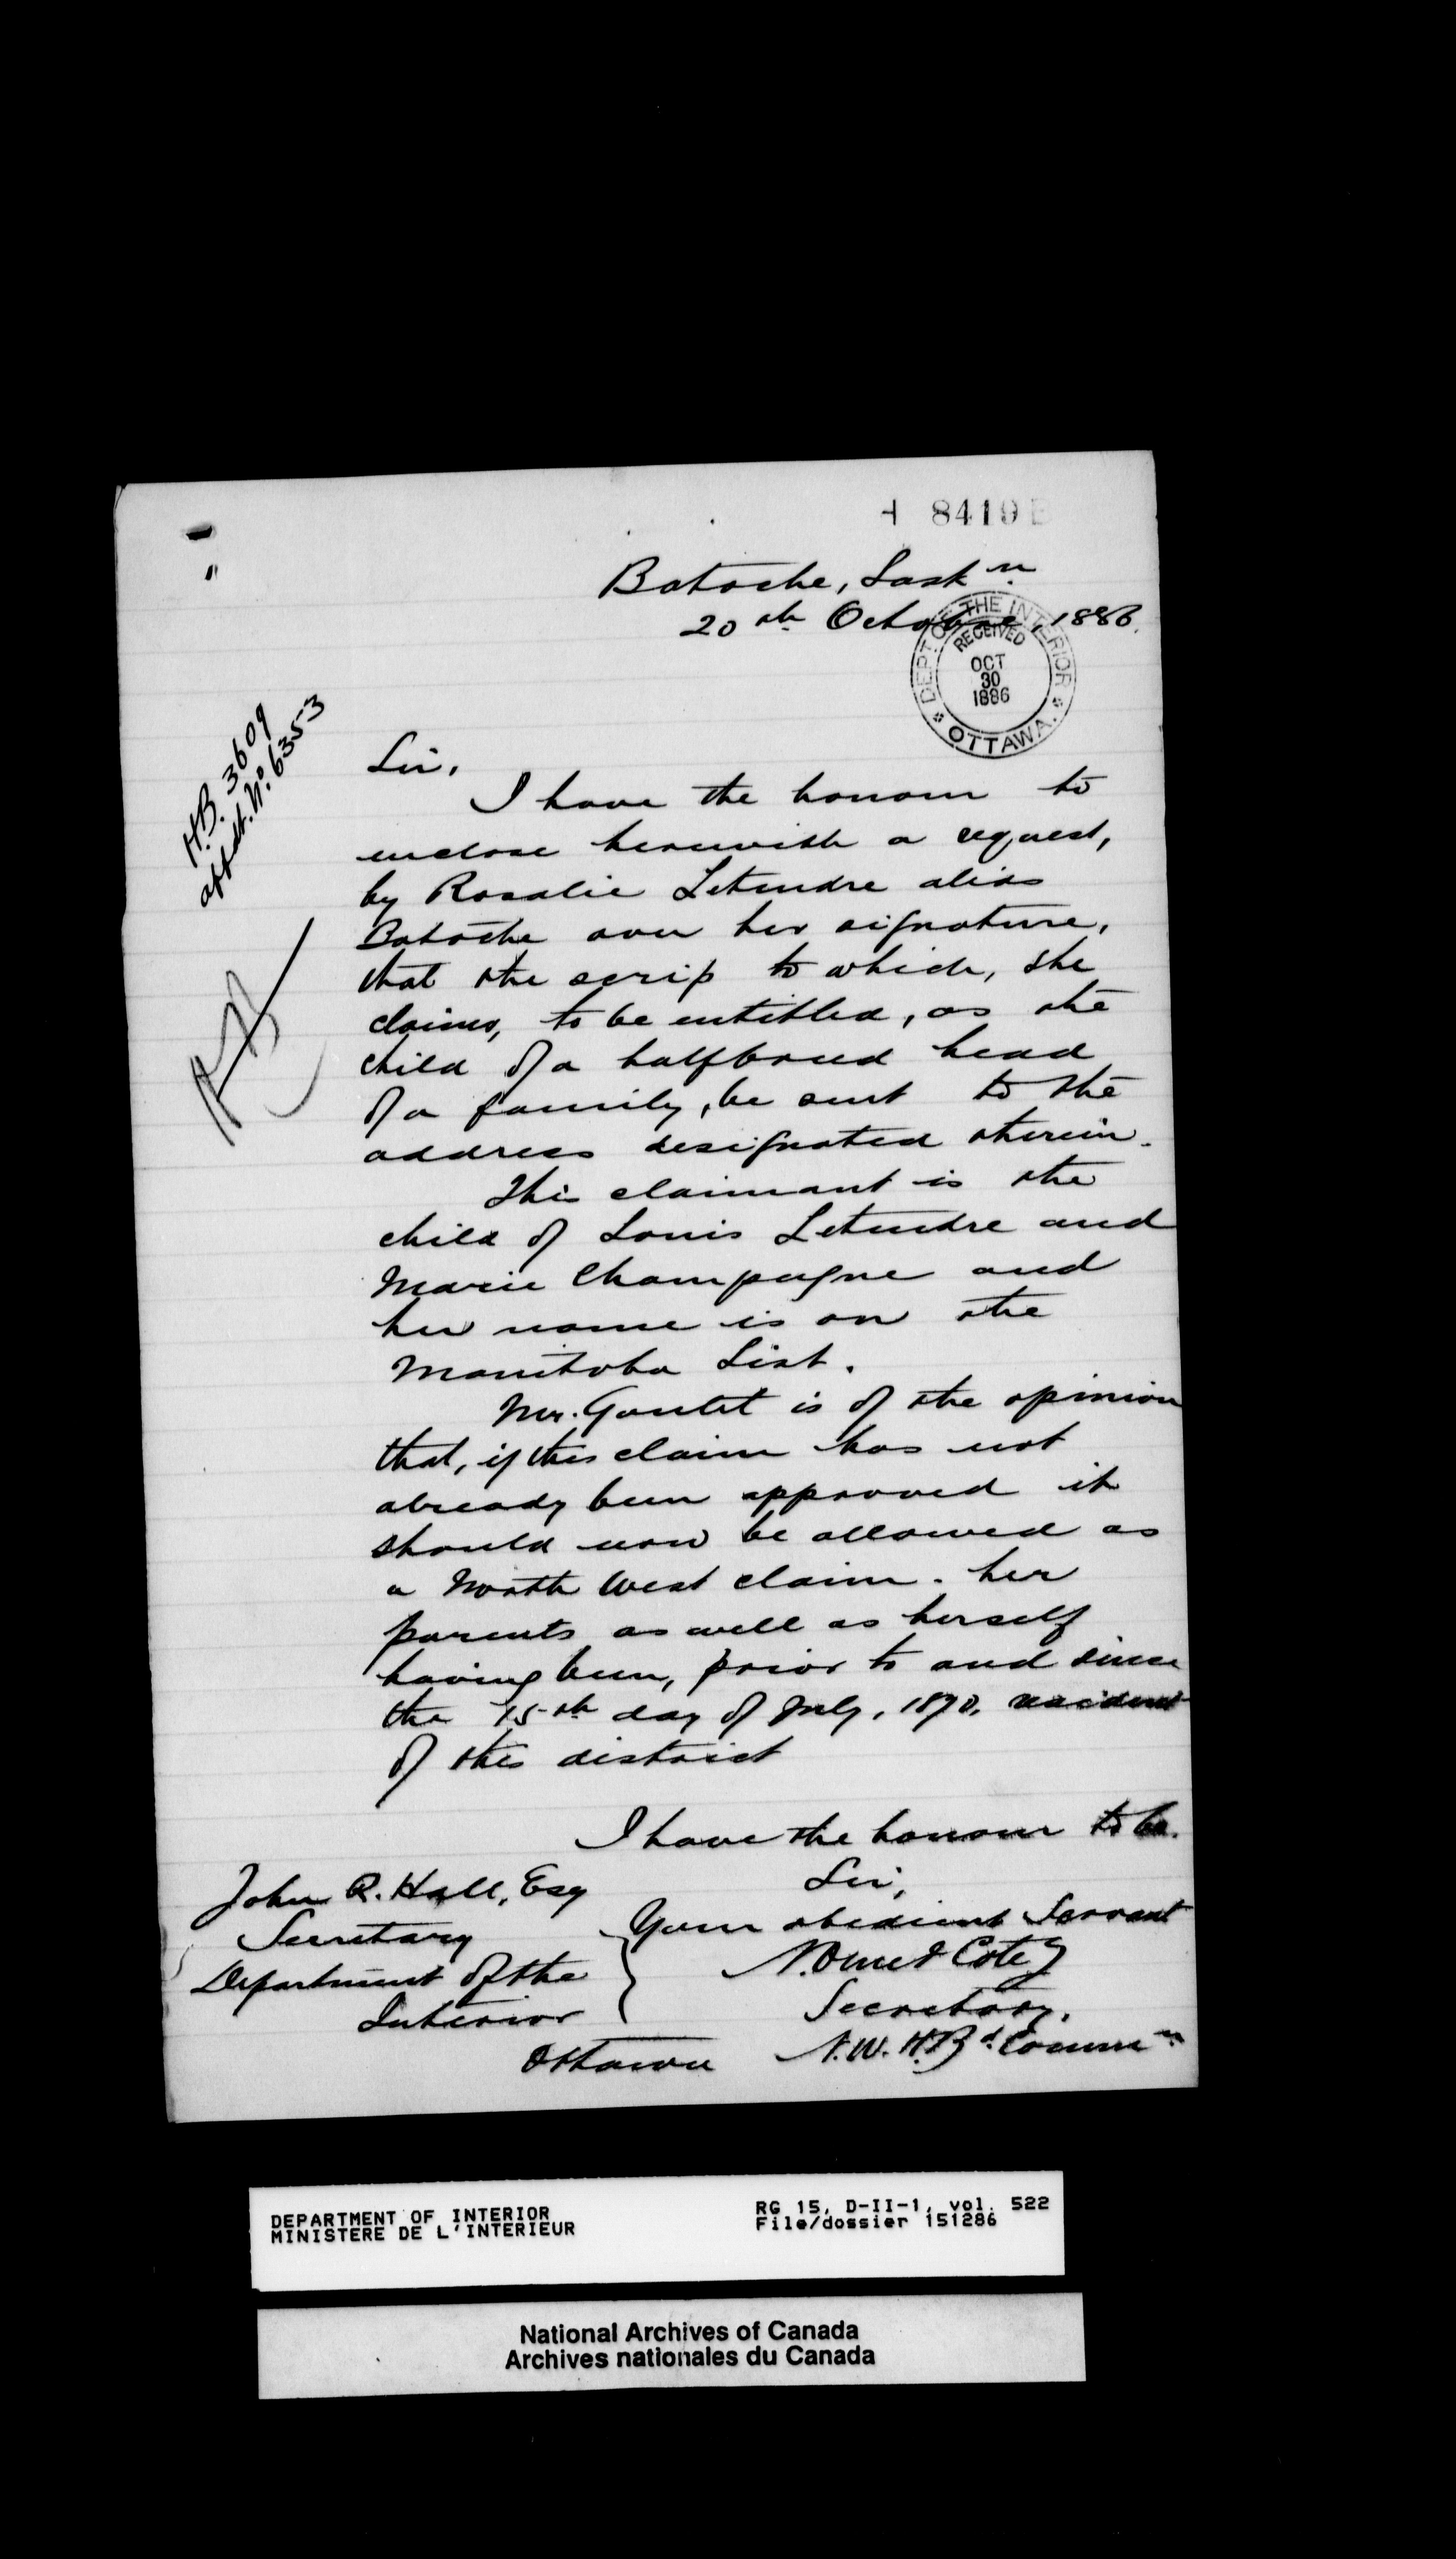 H 8419
Batoche, Sask n.
20th October, 1886.
DEPT. OF THE INTERIOR
RECEIVED
OCT
30
1886
OTTAWA.
H.B. 3609
affdt. No. 6353
Sir,
I have the honour to
enclose herewith a request,
by Rosalie Letendre alias
Batoche over her signature,
that the scrip to which, she
claims, to be entitled, as the
child of a halfbreed head
of a family, be sent to the
address designated therein.
This claimant is the
child of Louis Letendre and
Marie Champagne and
her name is on the
Manitoba List.
Mr. Goulet is of the opinion
that, if this claim has not
already been approved it
should now be allowed as
a North West claim. her
parents as well as herself
having been, prior to and since
the 15th day of July, 1870, resident
of this district
I have the honour to be.
Sir,
Your obedient Servant
N. Omer Coté
Secretary.
N.W. H.Bd. Commn
John R. Hall, Esq
Secretary
Department of the
Interior
Ottawa
DEPARTMENT OF INTERIOR
MINISTERE DE L'INTERIEUR
RG 15, D-II-1, vol. 522
File/dossier 151286
National Archives of Canada
Archives nationales du Canada